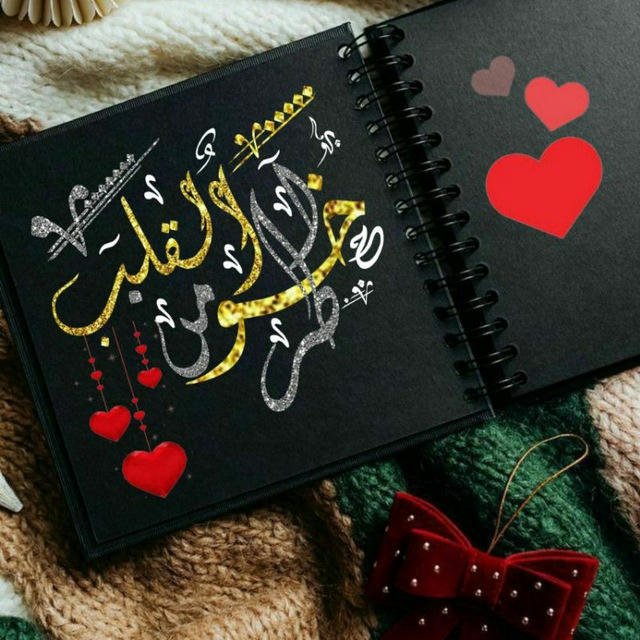 خواطر من القلب